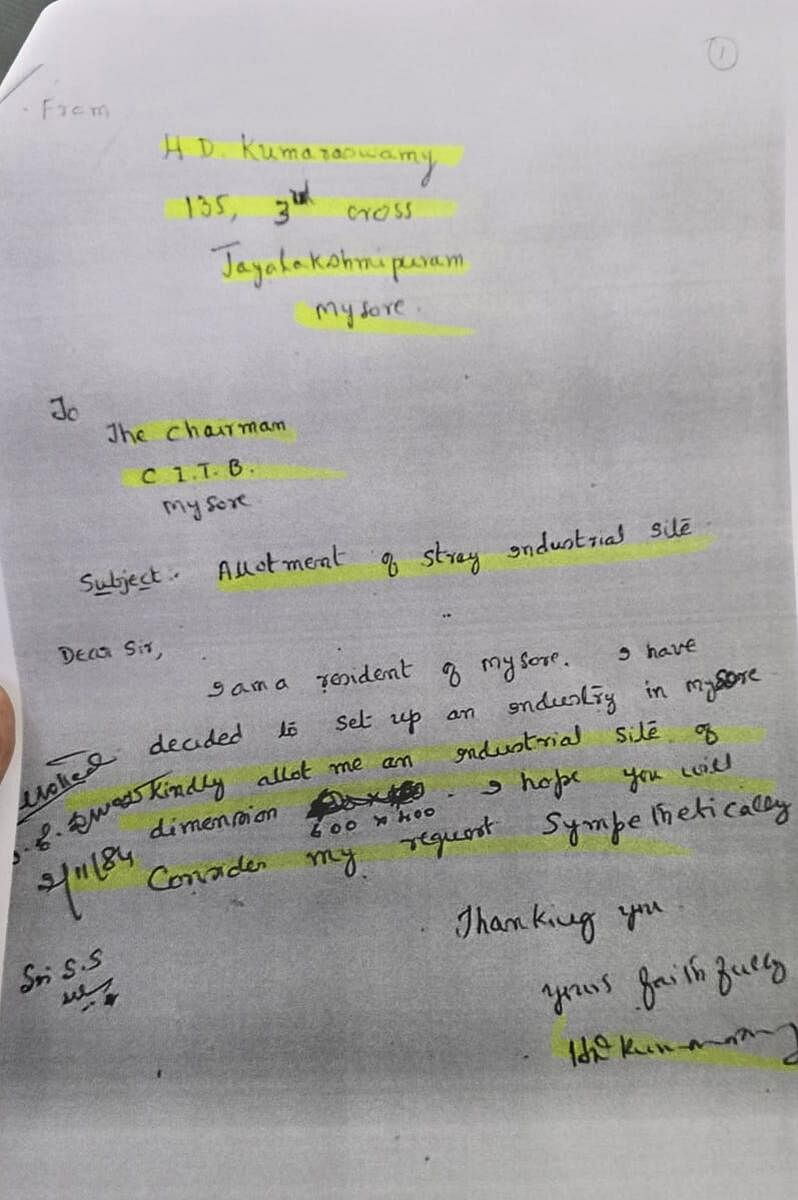 1
From
H D. Kumaraswamy
135, 3rd cross
Jayalakshmipuram
mysore.
To
The Chairman
C I.T.B.
mysore
Subject:- Allotment of stray industrial site
Dear Sir,
I am a resident of mysore. I have
decided to set up an industry in mysore
Kindly allot me an industrial site of
dimension 600 x 400. I hope you will
Consider my request Sympethetically
2/11/84
Thanking you
Sri S.S
yours faithfully
HD Kumaraswamy